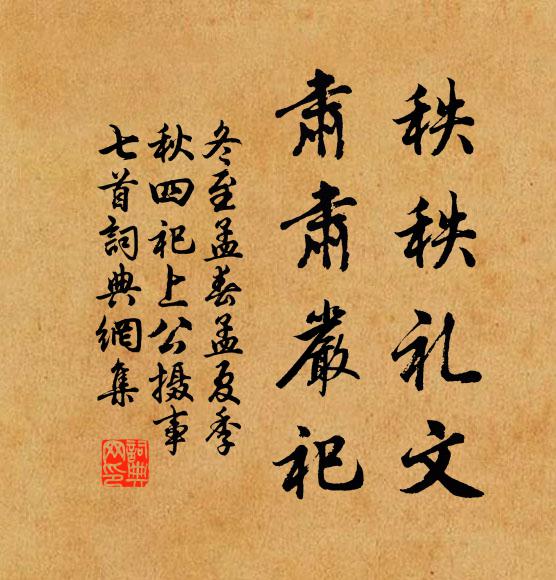 秩秩礼文
肅肅嚴祀
冬至孟春孟夏季
秋四祀上公摄事
七首詞典網集
詞典网印